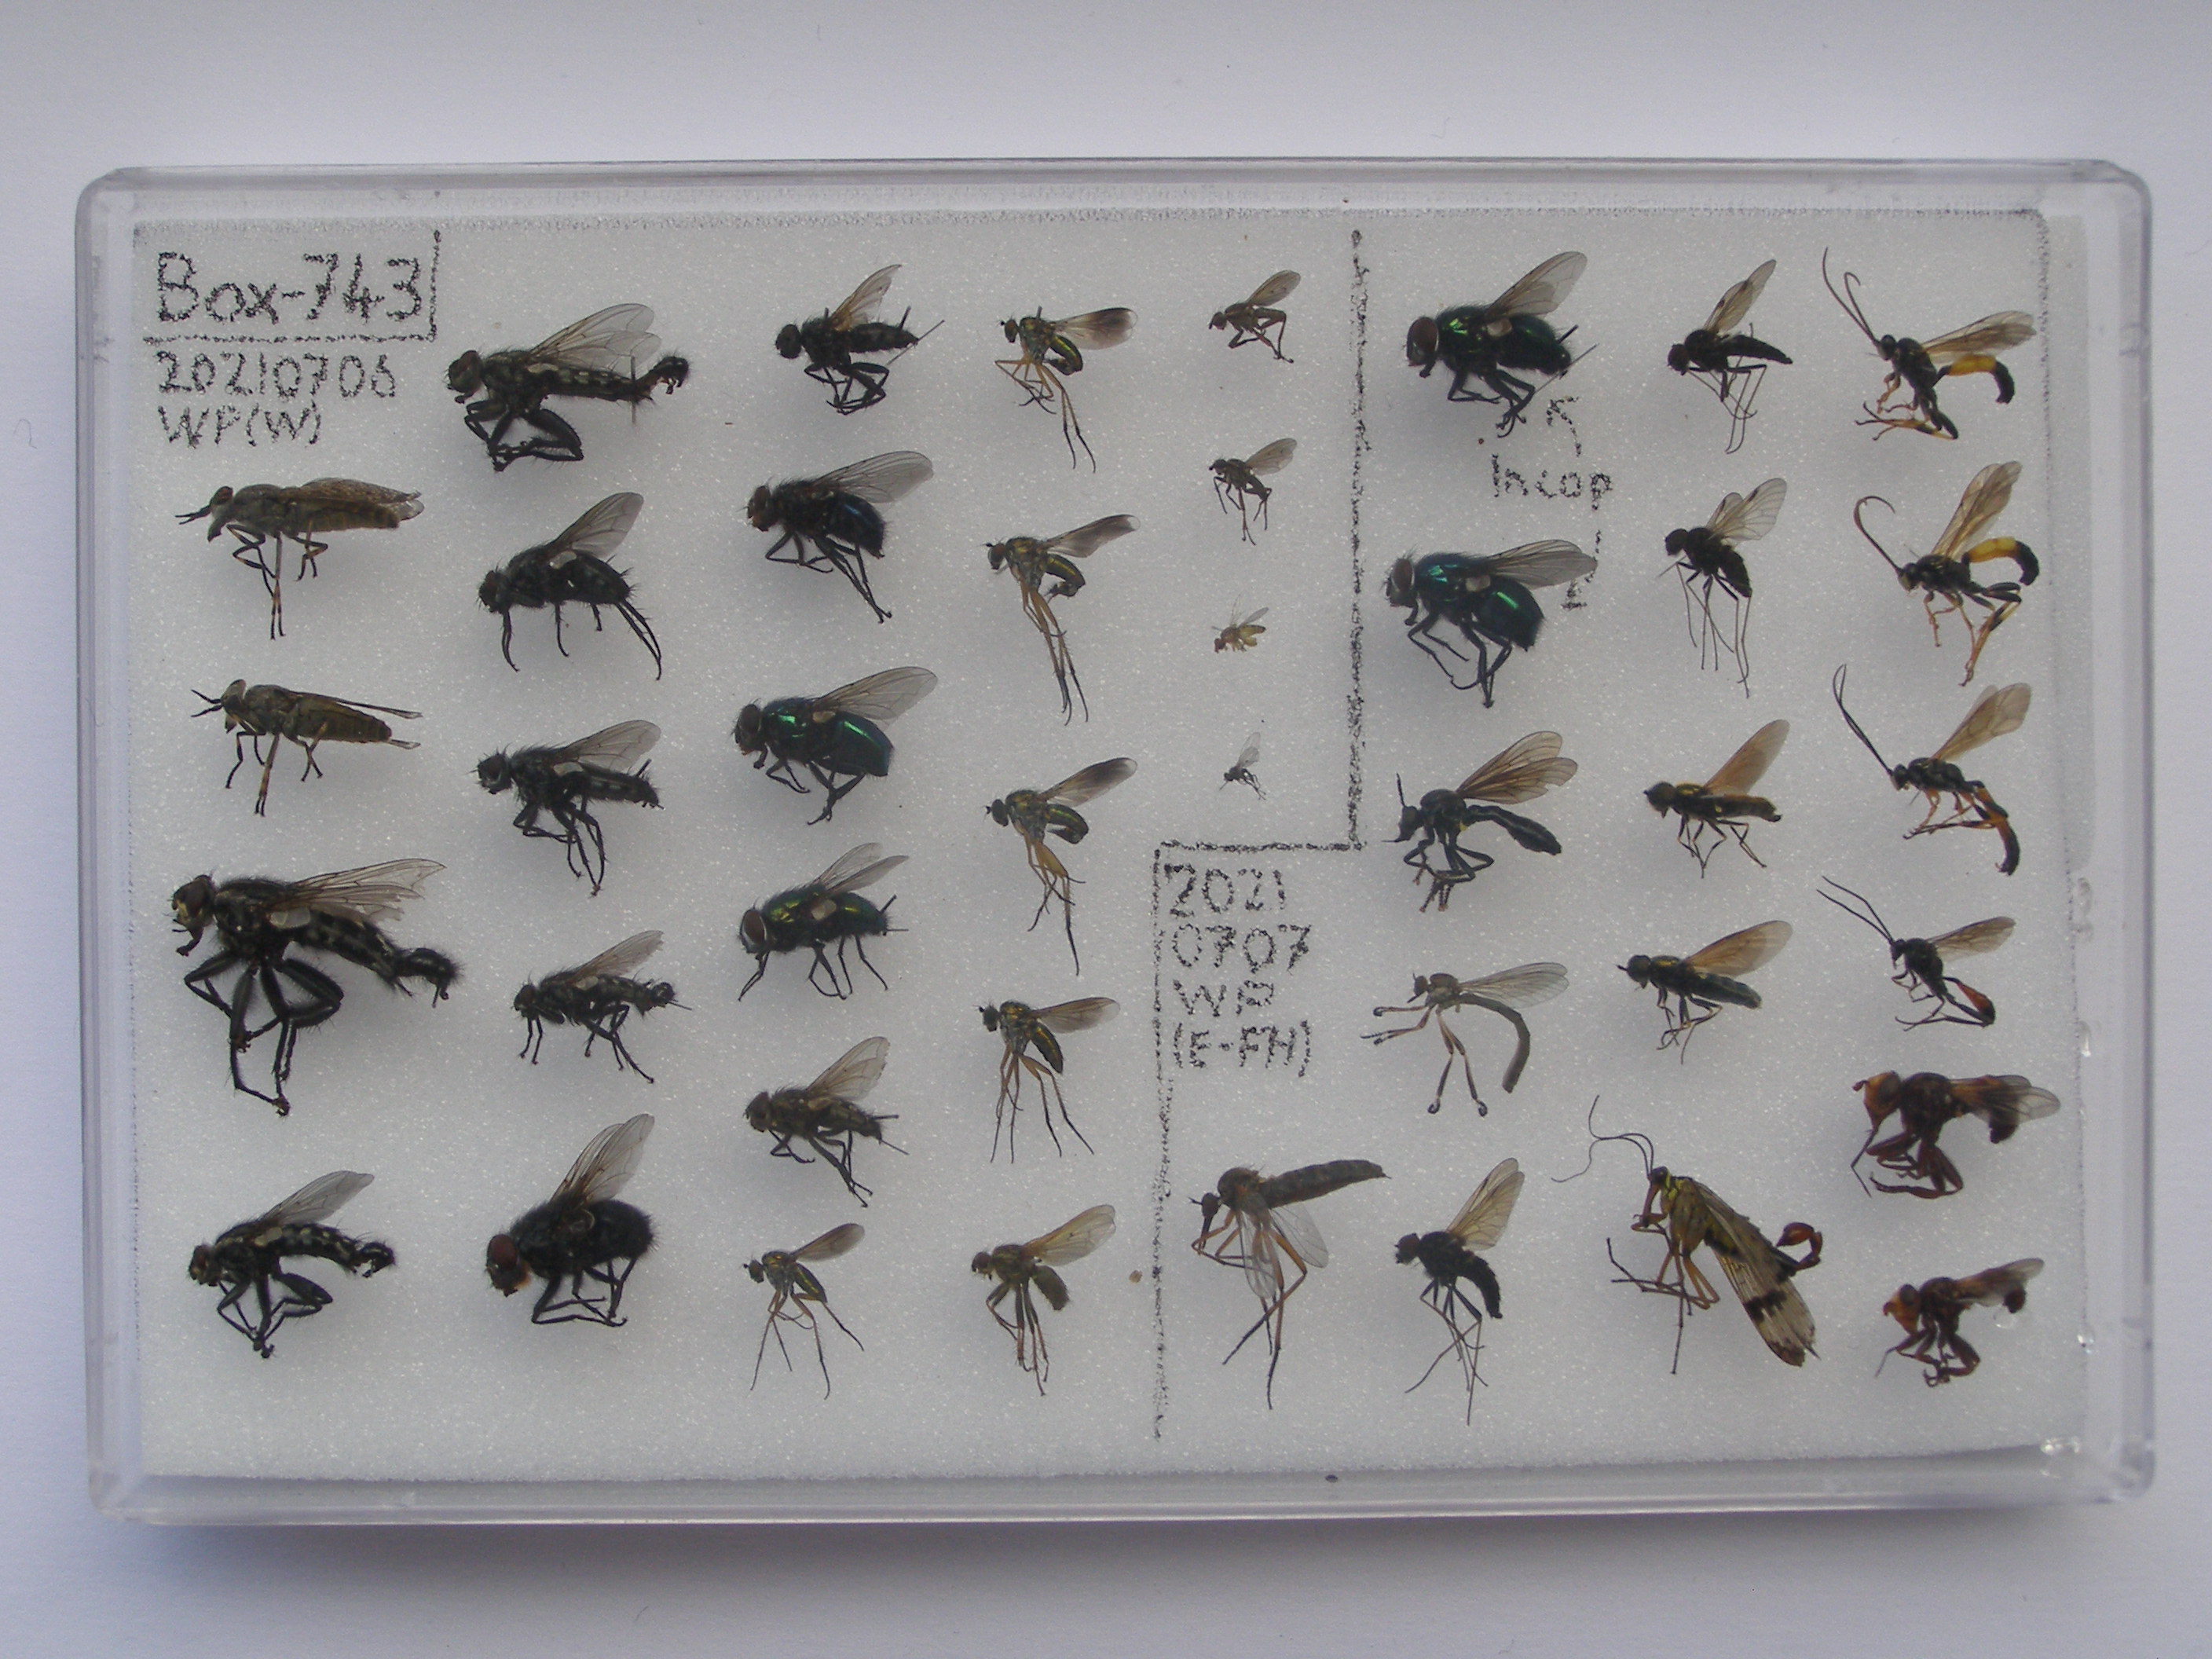 Box-743
20210706
WP(W)
In cop
2021
0707
WP
(E-FH)